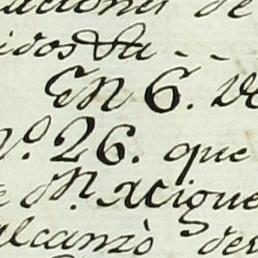 aciones de
idos Va - -
En 6. de
Nº. 26. que
e Dn. Migue
alcanzò des